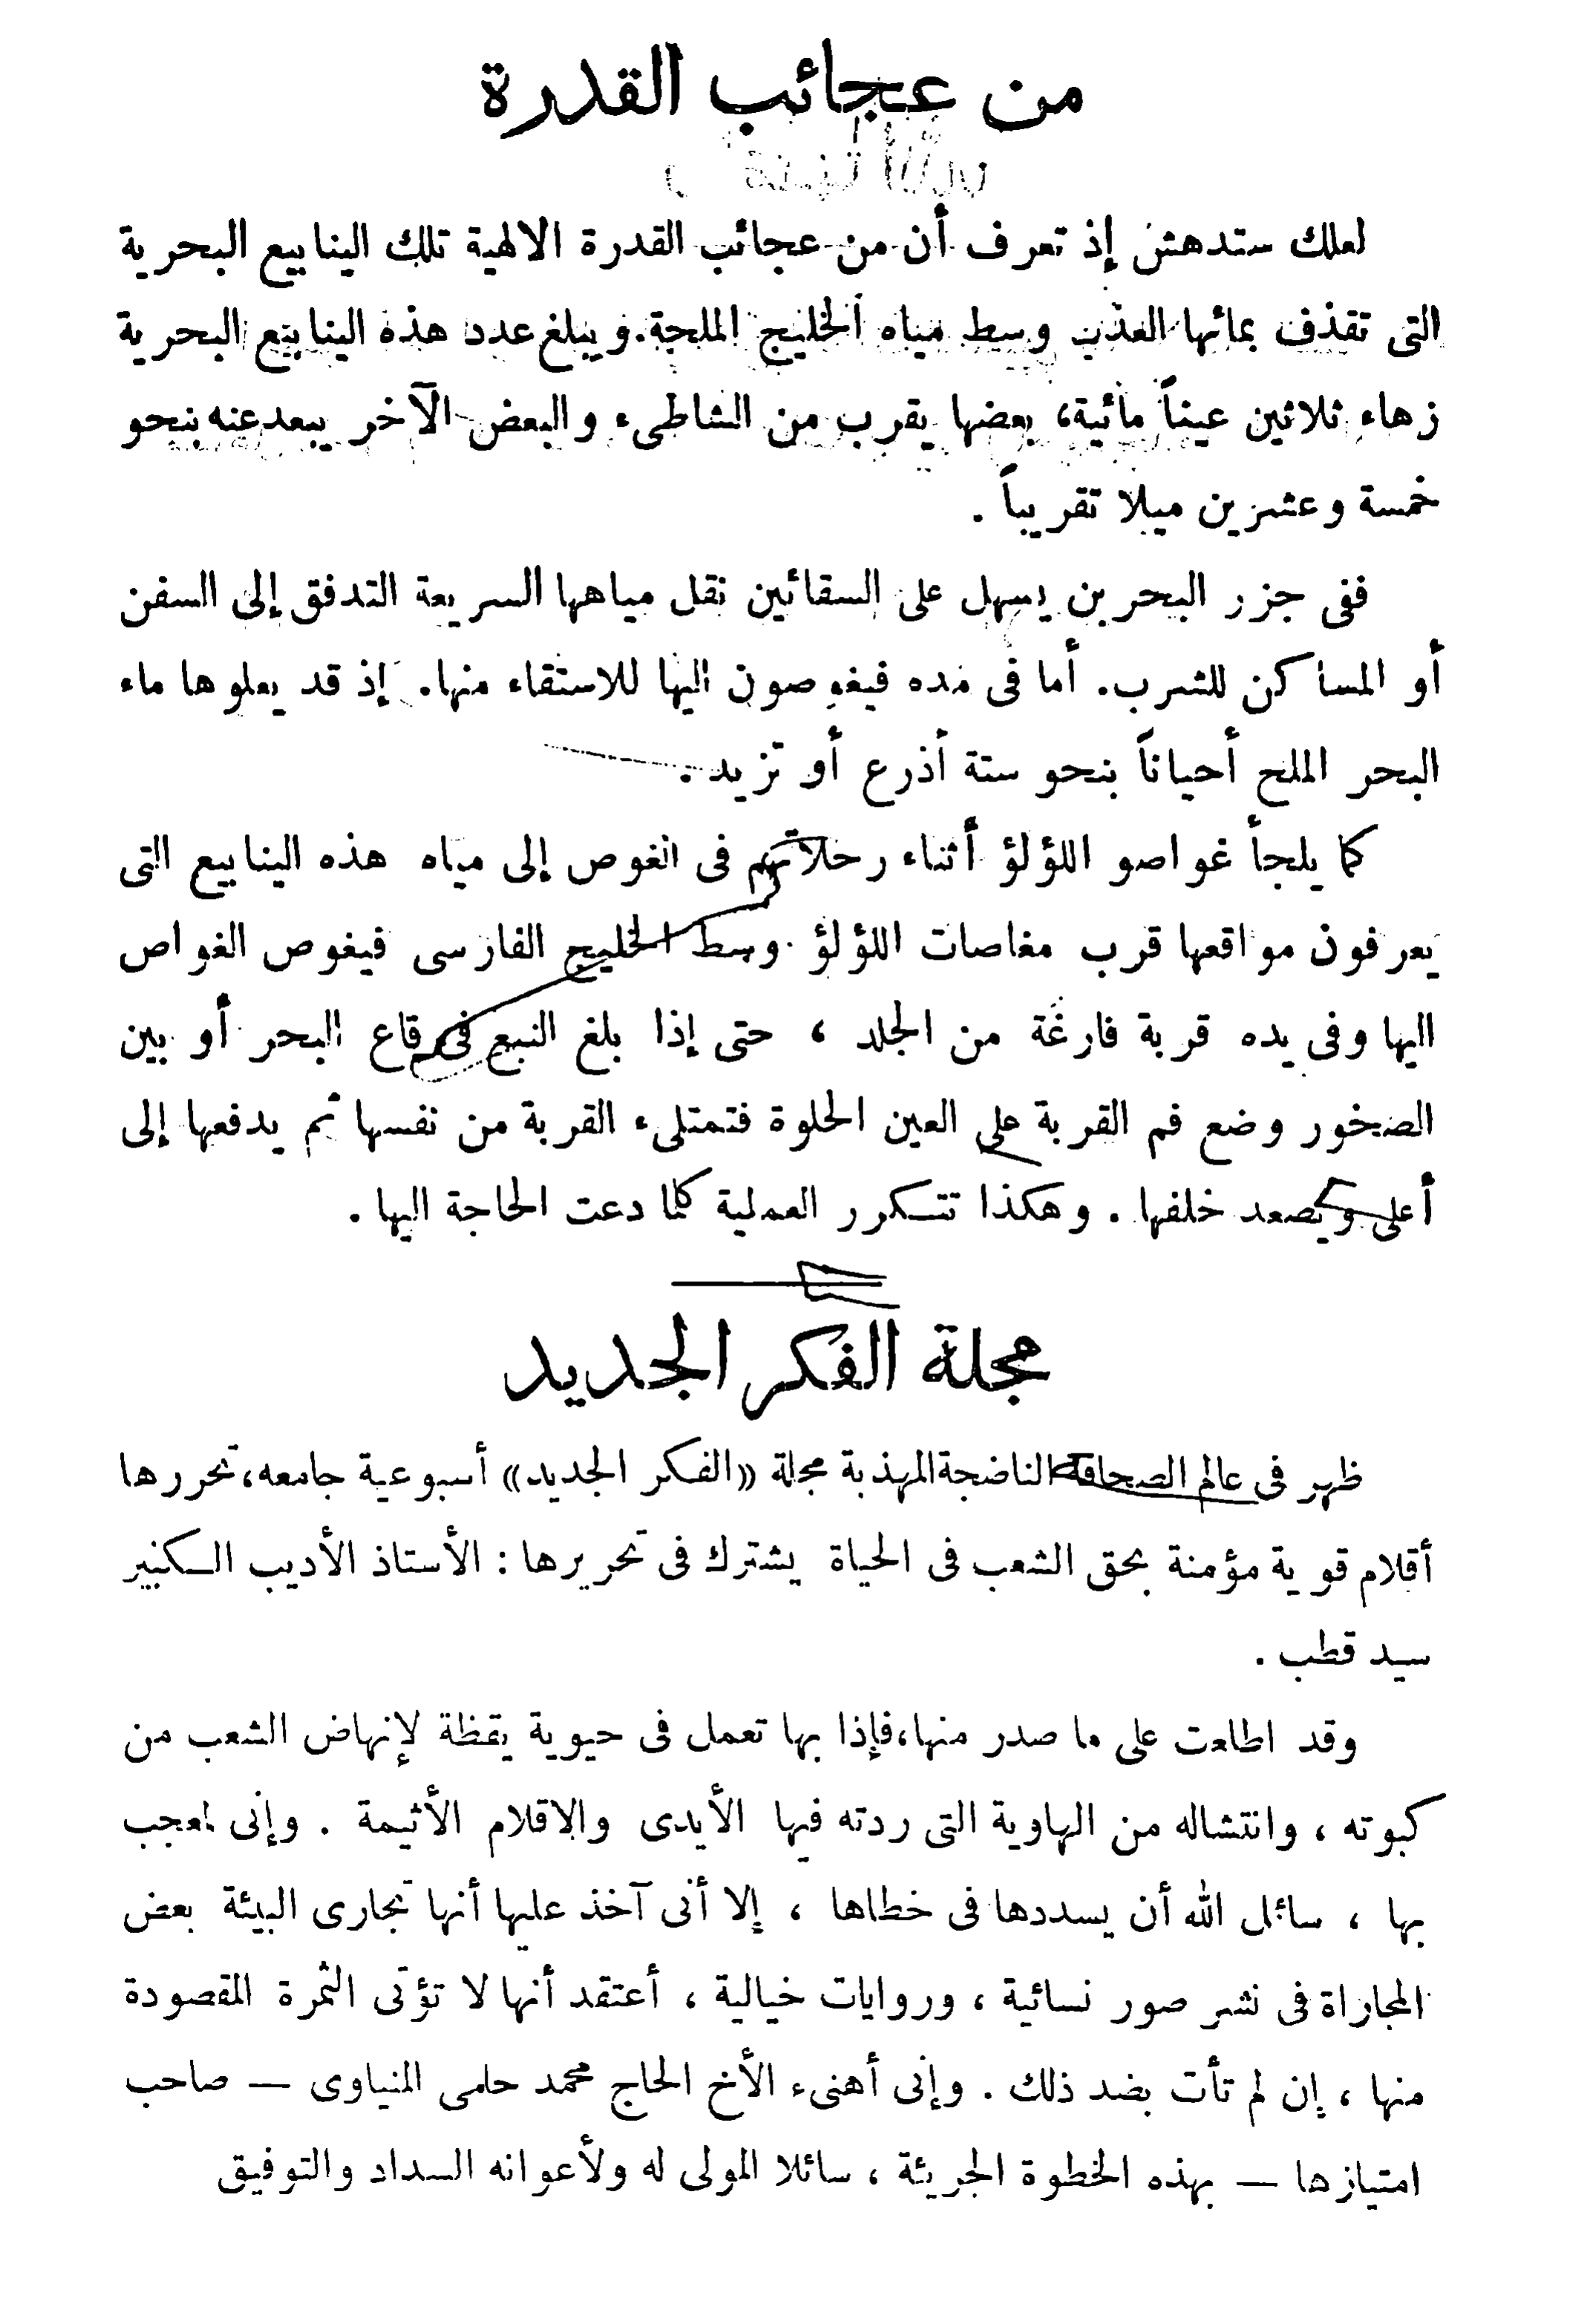 من عجائب القدرة
لعلك ستدهش إذ تعرف أن من عجائب القدرة الالهية تلك الينابيع البحرية
التى تقذف بمائها العذب وسط مياه الخليج الملحة. ويبلغ عدد هذه الينابيع البحرية
زهاء ثلاثين عيناً مائية، بعضها يقرب من الشاطىء والبعض الآخر يبعد عنه بنحو
خمسة وعشرين ميلا تقريباً .
ففى جزر البحرين يسهل على السقائين نقل مياهها السريعة التدفق إلى السفن
أو المساكن للشرب. أما فى مده فيغوصون اليها للاستقاء منها. إذ قد يعلوها ماء
البحر الملح أحياناً بنحو ستة أذرع أو تزيد .
كما يلجأ غواصو اللؤلؤ أثناء رحلاتهم فى الغوص إلى مياه هذه الينابيع التى
يعرفون مواقعها قرب مغاصات اللؤلؤ وسط الخليج الفارسى فيغوص الغواص
اليها وفى يده قربة فارغة من الجلد ، حتى إذا بلغ النبع فى قاع البحر أو بين
الصخور وضع فم القربة على العين الحلوة فتمتلىء القربة من نفسها ثم يدفعها إلى
أعلى ويصعد خلفها . وهكذا تتكرر العملية كلما دعت الحاجة اليها .
مجلة الفكر الجديد
ظهر فى عالم الصحافة الناضجة المهذبة مجلة «الفكر الجديد» أسبوعية جامعه، تحررها
أقلام قوية مؤمنة بحق الشعب فى الحياة يشترك فى تحريرها : الأستاذ الأديب الكبير
سيد قطب .
وقد اطلعت على ما صدر منها، فإذا بها تعمل فى حيوية يقظة لإنهاض الشعب من
كبوته ، وانتشاله من الهاوية التى ردته فيها الأيدى والاقلام الأثيمة . وإنى لمعجب
بها ، سائل الله أن يسددها فى خطاها ، إلا أنى آخذ عليها أنها تجارى البيئة بعض
المجاراة فى نشر صور نسائية ، وروايات خيالية ، أعتقد أنها لا تؤتى الثمرة المقصودة
منها ، إن لم تأت بضد ذلك . وإنى أهنىء الأخ الحاج محمد حلمى المنياوى — صاحب
امتيازها — بهذه الخطوة الجريئة ، سائلا المولى له ولأعوانه السداد والتوفيق